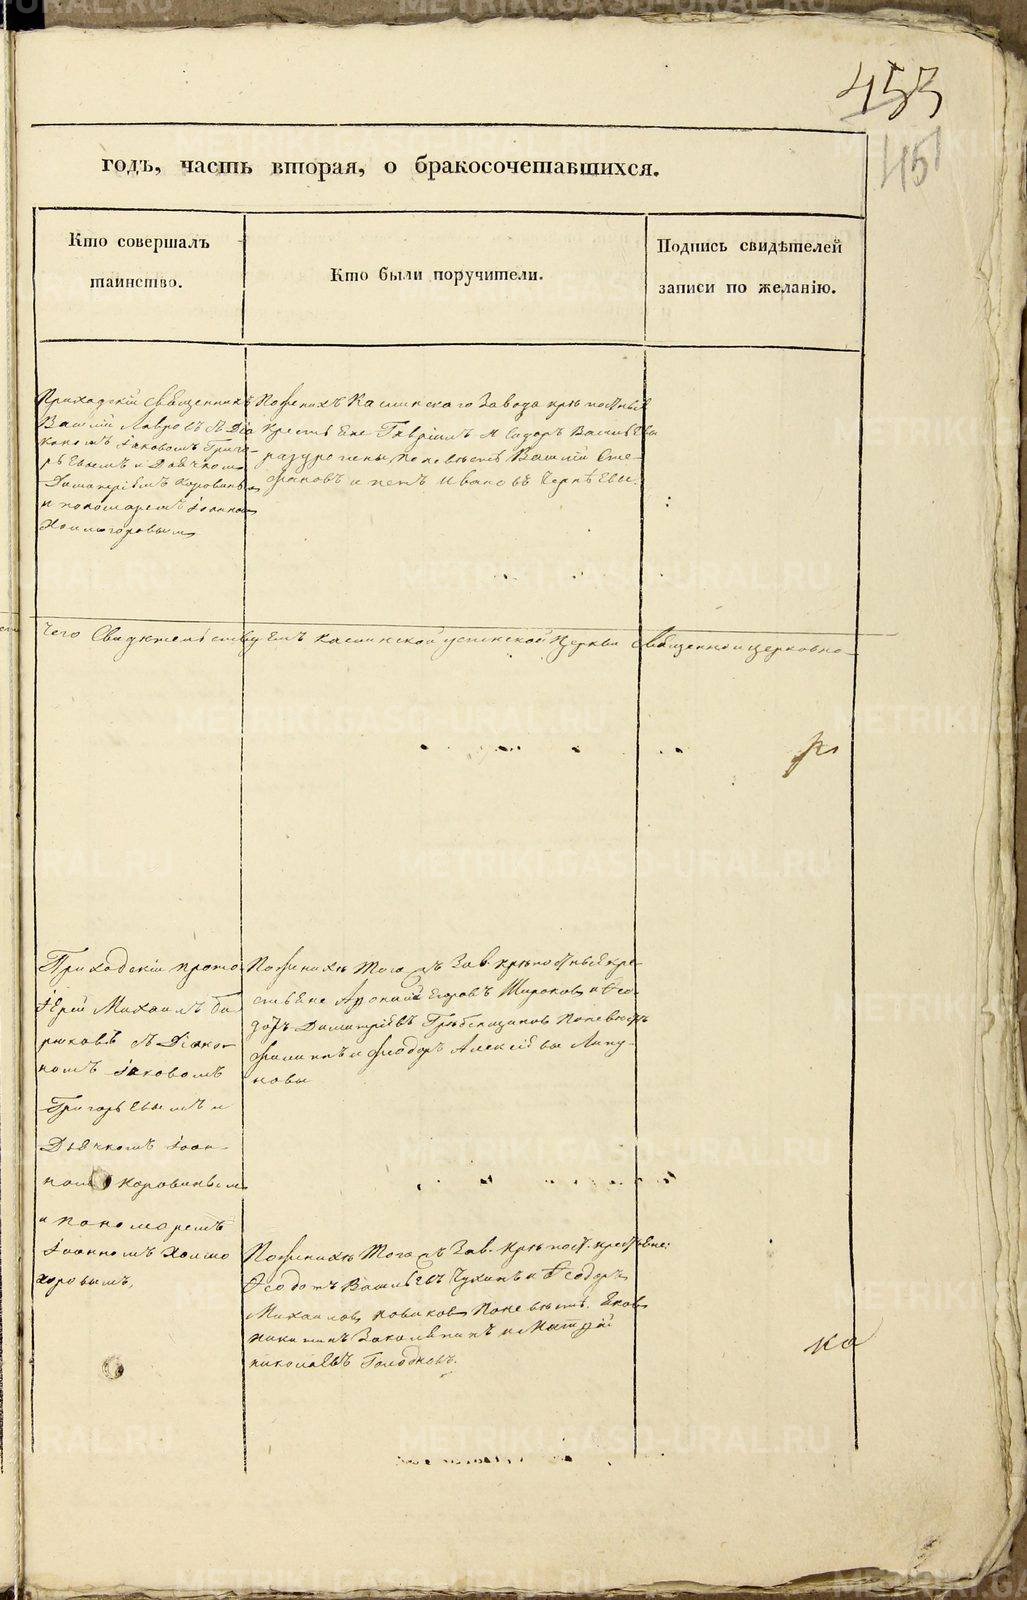 453
451
годъ, часть вторая, о бракосочетавшихся.
Кто совершалъ
таинство.
Кто были поручители.
Подпись свидѣтелей
записи по желанію.
Приходскій священникъ
Василій Лавровъ съ Діа
кономъ Іаковомъ Григо-
рьевымъ и Дьячкомъ
Димитріемъ Коровинымъ
и пономаремъ Іоанномъ
Холмогоровымъ
По женихѣ Каслинскаго Завода крѣпостные
Крестьяне Гавріилъ и Сидоръ Васильевы
по невѣстѣ Василій Сте-
фановъ и Ивановъ
чего Свидѣтельствуемъ Каслинской Успенской Церкви Священноицерковно-
Приходскій прото
іерей Михаилъ Би
рюковъ съ Діако-
номъ Іаковомъ
Григорьевымъ и
Дьячкомъ Іоан-
номъ Коровинымъ
и пономаремъ
Іоанномъ Холмо
горовымъ,
По женихѣ того жъ Зав. крѣпостные кре-
стьяне Егоровъ Широковъ и Ѳео-
доръ Димитріевъ по невѣстѣ
Филиппъ и Феодоръ Алексѣевы Лапу-
новы
По женихѣ того жъ Зав. крѣпост. крестьяне:
Ѳедотъ Васильевъ и Ѳеодоръ
Михаиловъ Новиковъ по невѣстѣ Яковъ
Никитинъ и Матвѣй
Николаевъ Голодновъ.
ка
METRIKI.GASO-URAL.RU